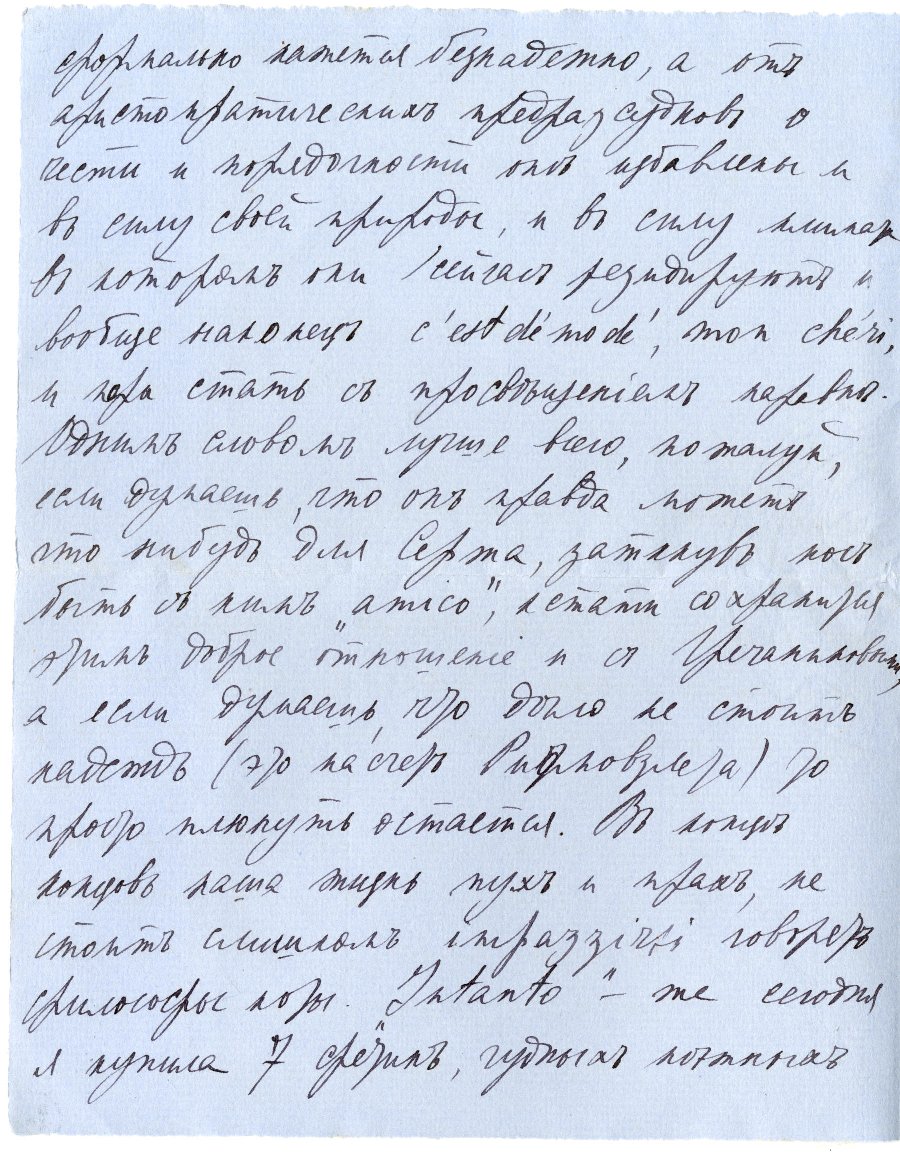 формально кажется безнадежно, а отъ
аристократическихъ предразсудковъ о
чести и порядочности онъ избавлены и
въ силу своей природы, и въ силу климата
въ которомъ они сейчасъ резидируютъ и
вообще наконецъ c'est démodé, mon chéri,
и пора стать съ просвѣщеніемъ наравнѣ.
Однимъ словомъ лучше всего, пожалуй,
если думаешь, что онъ правда можетъ
что нибудь для Сержа, заткнувъ носъ
быть съ нимъ "amico", кстати сохранится
этимъ доброе отношеніе и съ Гречаниновыми,
а если думаешь, что дѣло не стоитъ
надеждъ (это насчетъ) то
просто плюнуть остается. Въ концѣ
концовъ наша жизнь пухъ и прахъ, не
стоитъ слишкомъ impazzirsi говорятъ
философы козы. "Intanto" – же сегодня
я купила 7 чудныхъ